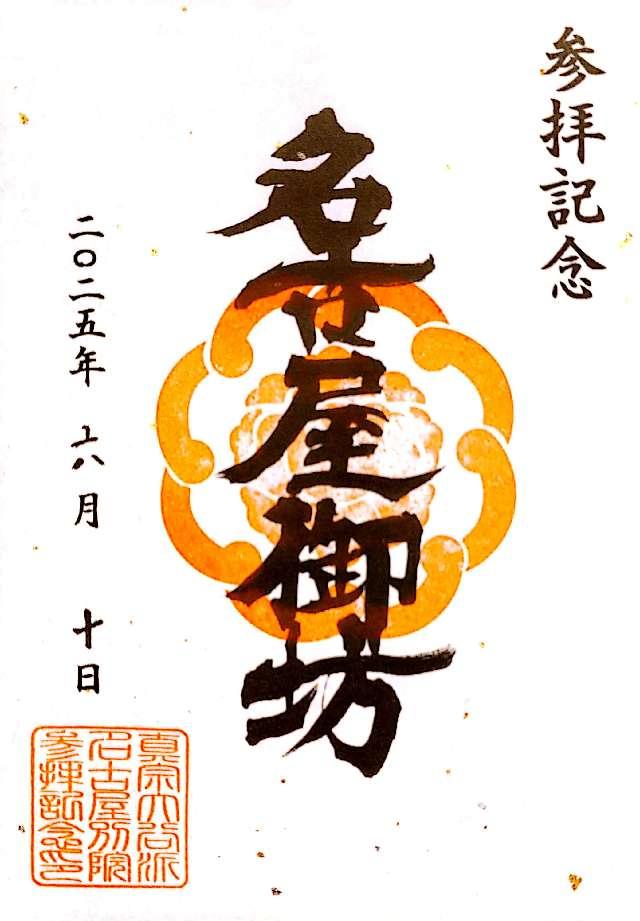 参拝記念
名古屋御坊
二〇二五年 六月 十日
真宗大谷派
名古屋別院
参拝記念印